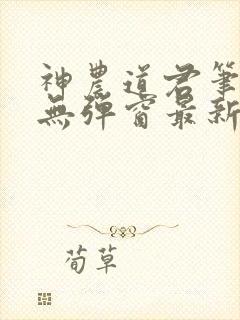 神農道君筆
無彈窗最新
荀草